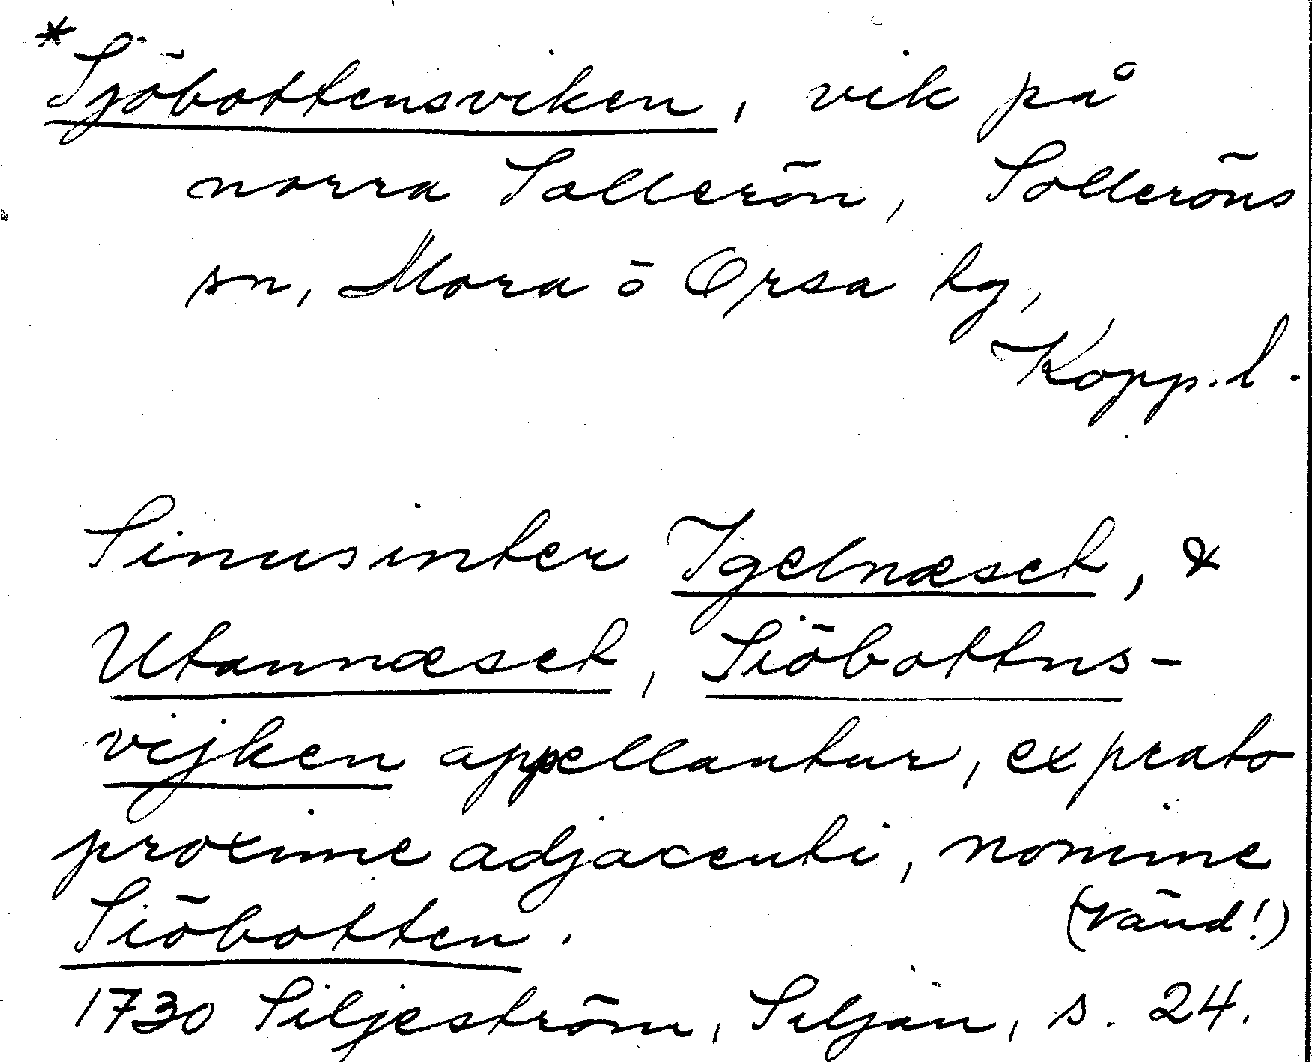 *
Sjöbottensviken, vik på
norra Sollerön, Solleröns
sn, Mora o Orsa tg,
Kopp. l.
Sinus inter Igelnæset, &
Utannæset, Siöbottns-
vijken appellantur, ex prato
proxime adjacenti, nomine
Siöbotten.
(Vänd!)
1730 Siljeström, Siljan, s. 24.